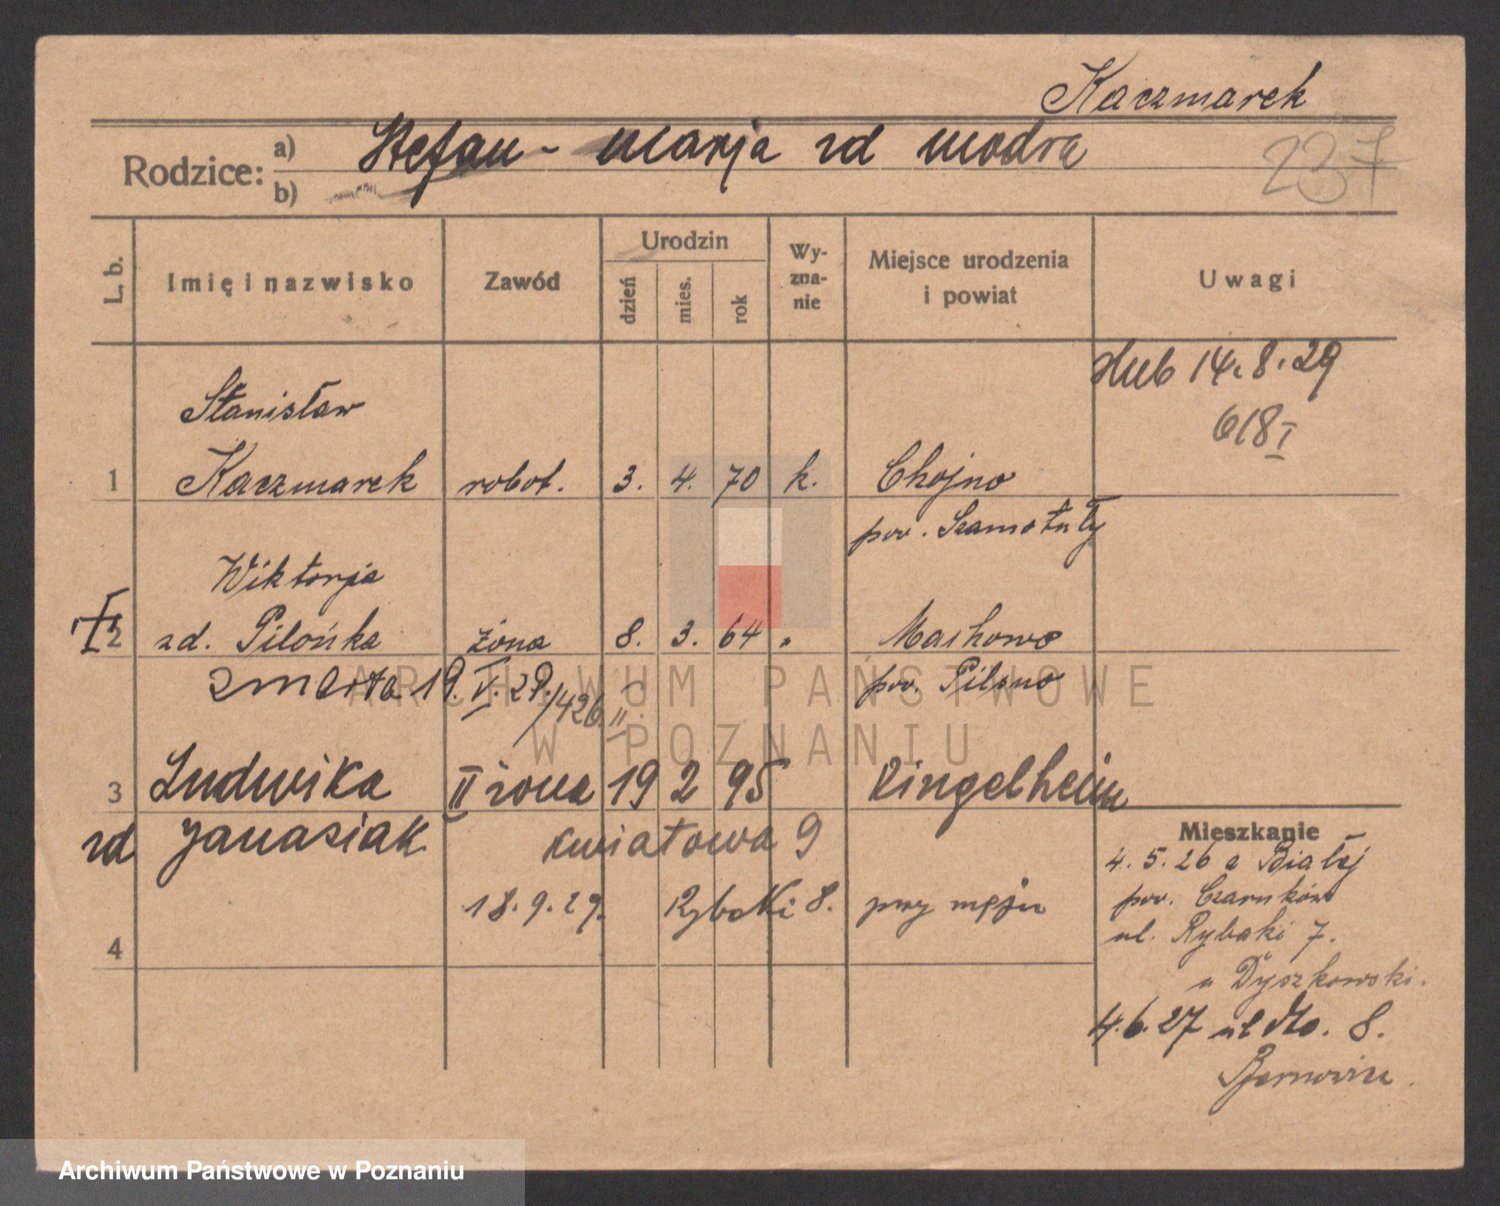 Kaczmarek
Rodzice: a) Stefan - Marja zd Modra
b)
237
L. b. Imię i nazwisko Zawód Urodzin dzień mies. rok Wyznanie Miejsce urodzenia i powiat Uwagi
Hub 14.8.29
618 I
Stanisław
1 Kaczmarek robot. 3. 4. 70 k. Chojno
pow. Szamotuły
Wiktorja
2 zd. Pilońka żona 8. 3. 64 "
pow.
zmarła 19.V.29./426 II
3 Ludwika II żona 19 2 95 Ringelheim
zd Janasiak Kwiatowa 9
18.9.29. Rybaki 8. przy mężu
4
Mieszkanie
4.5.26 a Białej
pow. Czarnków
ul. Rybaki 7.
u Dyszkowski.
4.6.27 ul dto. 8.
ARCHIWUM PAŃSTWOWE
W POZNANIU
Archiwum Państwowe w Poznaniu